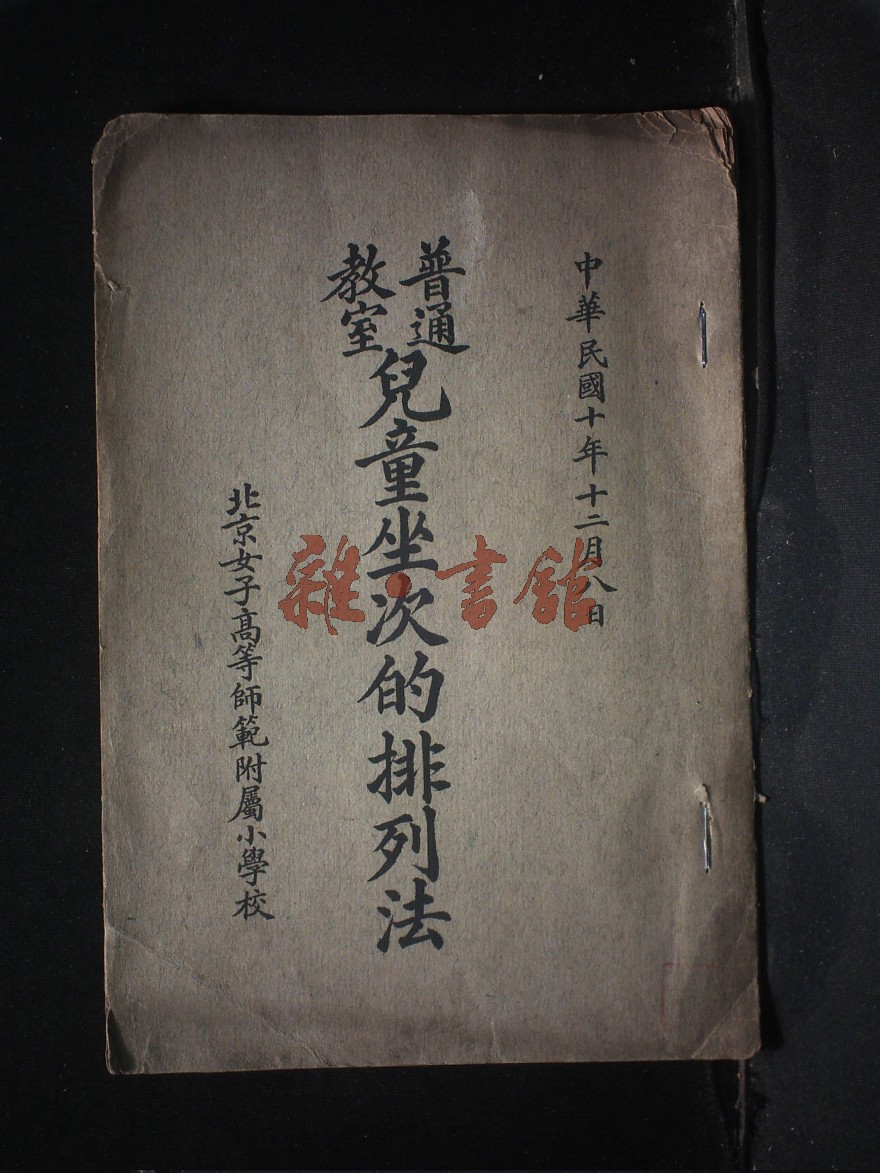 中華民國十年十二月八日
普通教室兒童坐次的排列法
北京女子高等師範附屬小學校
雜·書館